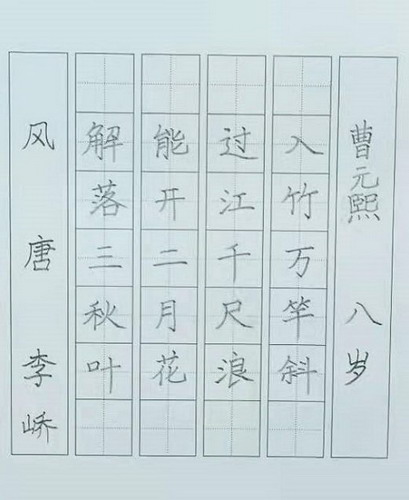 风 唐 李峤
解落三秋叶
能开二月花
过江千尺浪
入竹万竿斜
曹元熙 八岁